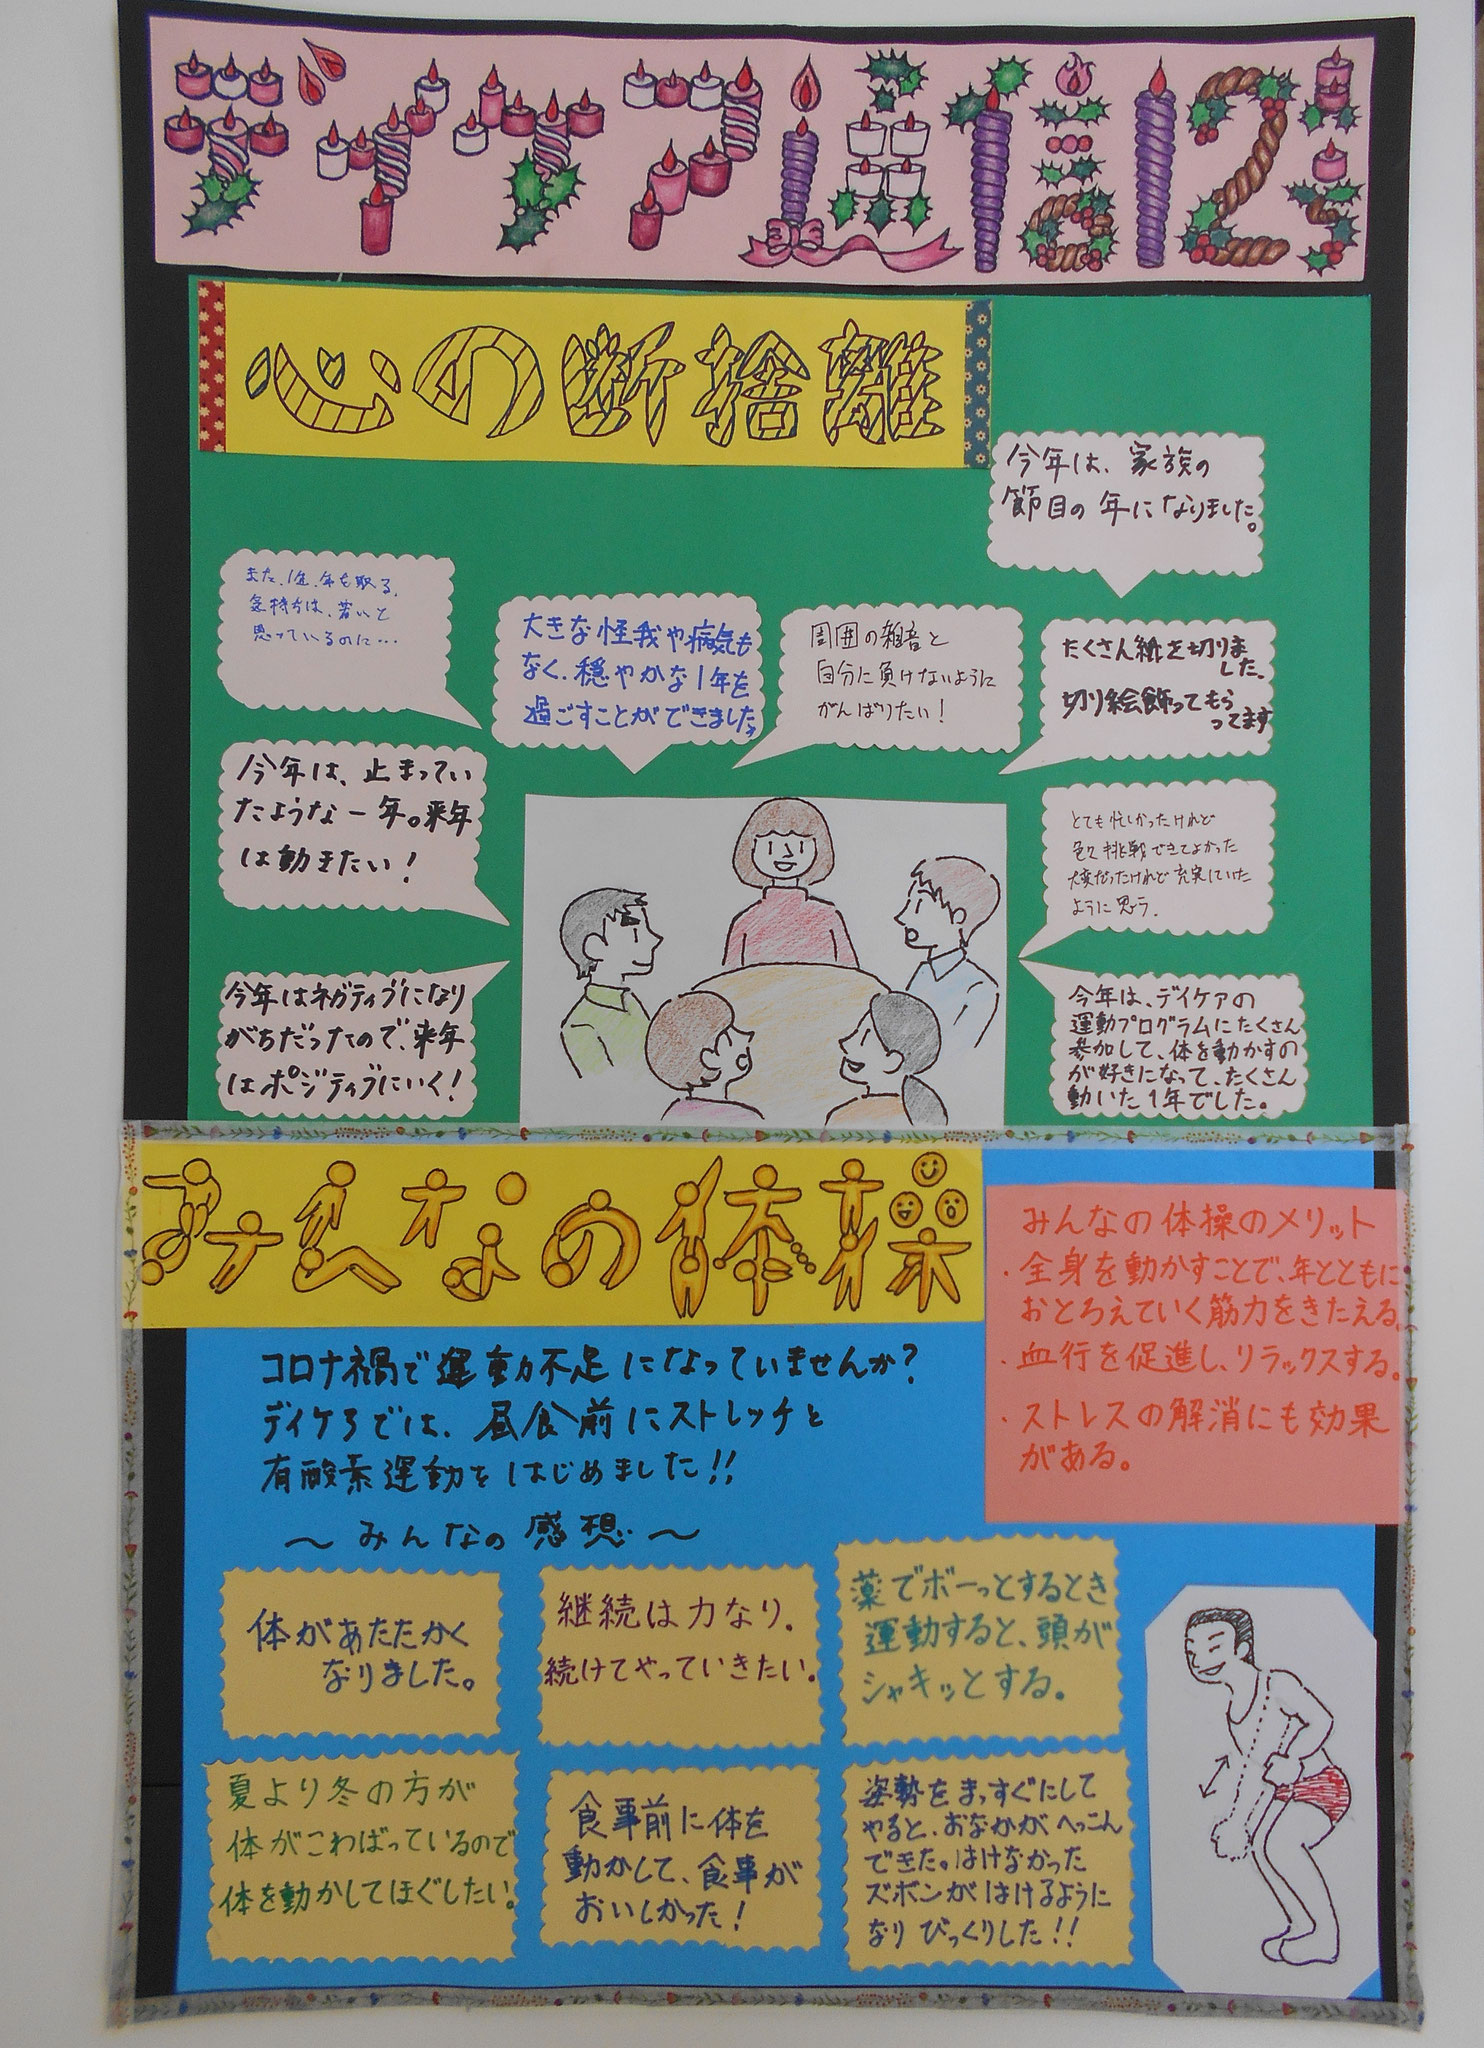 デイケア通信12号
心の断捨離
今年は、家族の
節目の年になりました。
また、1年、年を取る。
気持ちは、若いと
思っているのに…
大きな怪我や病気も
なく、穏やかな1年を
過ごすことができました。
周囲の雑音と
自分に負けないように
がんばりたい!
たくさん紙を切りま
した。
切り絵飾ってもら
ってます
今年は、止まってい
たような一年。来年
は動きたい!
とても忙しかったけれど
色々挑戦できてよかった
大変だったけれど充実していた
ように思う。
今年はネガティブになり
がちだったので、来年
はポジティブにいく!
今年は、デイケアの
運動プログラムにたくさん
参加して、体を動かすの
が好きになって、たくさん
動いた1年でした。
みんなの体操
みんなの体操のメリット
・全身を動かすことで、年とともに
おとろえていく筋力をきたえる。
・血行を促進し、リラックスする。
・ストレスの解消にも効果
がある。
コロナ禍で運動不足になっていませんか?
デイケアでは、昼食前にストレッチと
有酸素運動をはじめました!!
〜みんなの感想〜
体があたたかく
なりました。
継続は力なり。
続けてやっていきたい。
薬でボーっとするとき
運動すると、頭が
シャキッとする。
夏より冬の方が
体がこわばっているので
体を動かしてほぐしたい。
食事前に体を
動かして、食事が
おいしかった!
姿勢をまっすぐにして
やると、おなかがへっこん
できた。はけなかった
ズボンがはけるように
なりびっくりした!!